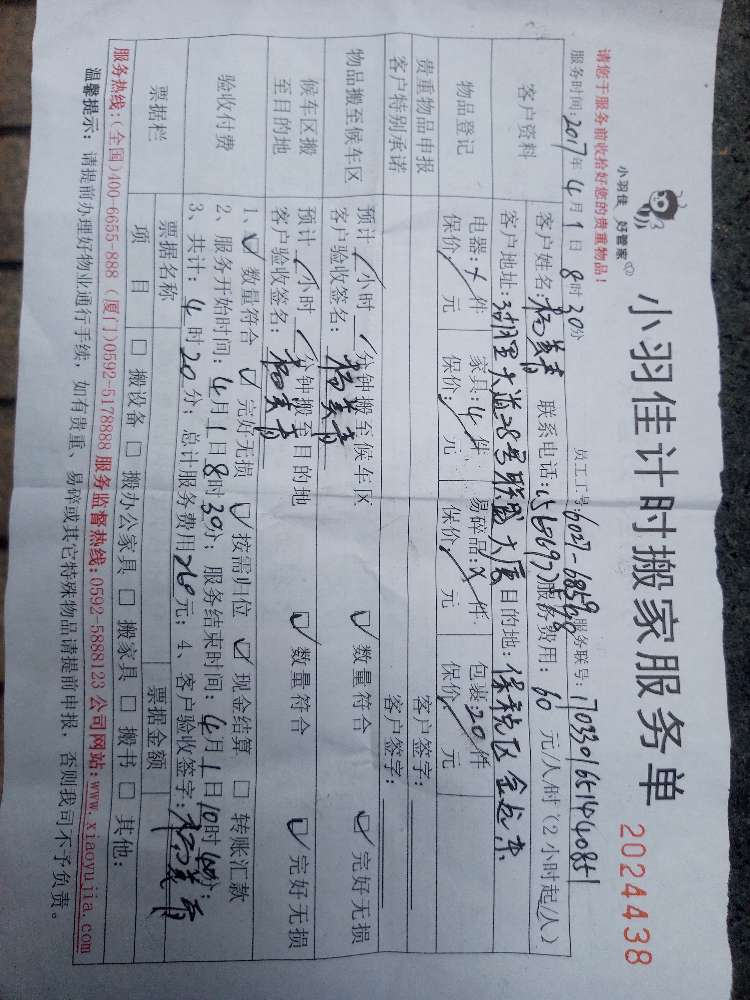 小羽佳 好管家
小羽佳计时搬家服务单
2024438
请您于服务前收拾好您的贵重物品!
员工工号: 服务联号:
服务时间2017年4月1日8时30分
客户资料
客户姓名: 联系电话: 服务费用:60元/人/时(2小时起/人)
客户地址: 大道28号联盟大厦目的地:保税区
物品登记
电器: 件 家具:4件 易碎品:X件 包裹:20件
保价: 元 保价: 元 保价: 元 保价: 元
贵重物品申报 客户签字:
客户特别承诺 客户签字:
物品搬至候车区
预计 小时 分钟搬至候车区 ☑数量符合 ☑完好无损
客户验收签名:
候车区搬至目的地
预计 小时 分钟搬至目的地 ☑数量符合 ☑完好无损
客户验收签名:
验收付费
1、☑数量符合 ☑完好无损 ☑按需归位 ☑现金结算 □转账汇款
2、服务开始时间:4月1日8时30分;服务结束时间:4月1日10时40分;
3、共计:4时20分;总计服务费用260元;4、客户验收签字:
票据栏
票据名称 票据金额
项目 □搬设备 □搬办公家具 □搬家具 □搬书 □其他:
服务热线:(全国)400-6655-888(厦门)0592-5178888 服务监督热线:0592-5888123 公司网站:www.xiaoyujia.com
温馨提示:请提前办理好物业通行手续,如有贵重、易碎或其它特殊物品请提前申报,否则我司不予负责。